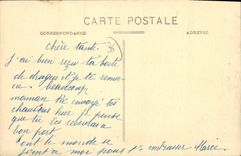 CARTE POSTALE
CORRESPONDANCE ADRESSE
Chère tante
J'ai bien reçu ta boite
de dragées et je te remer
cie beaucoup
maman t'a envoyé tes
chaussons hier je pense
que tu les recevras à
bon port
tout le monde se
joint à moi pour t'embrasser